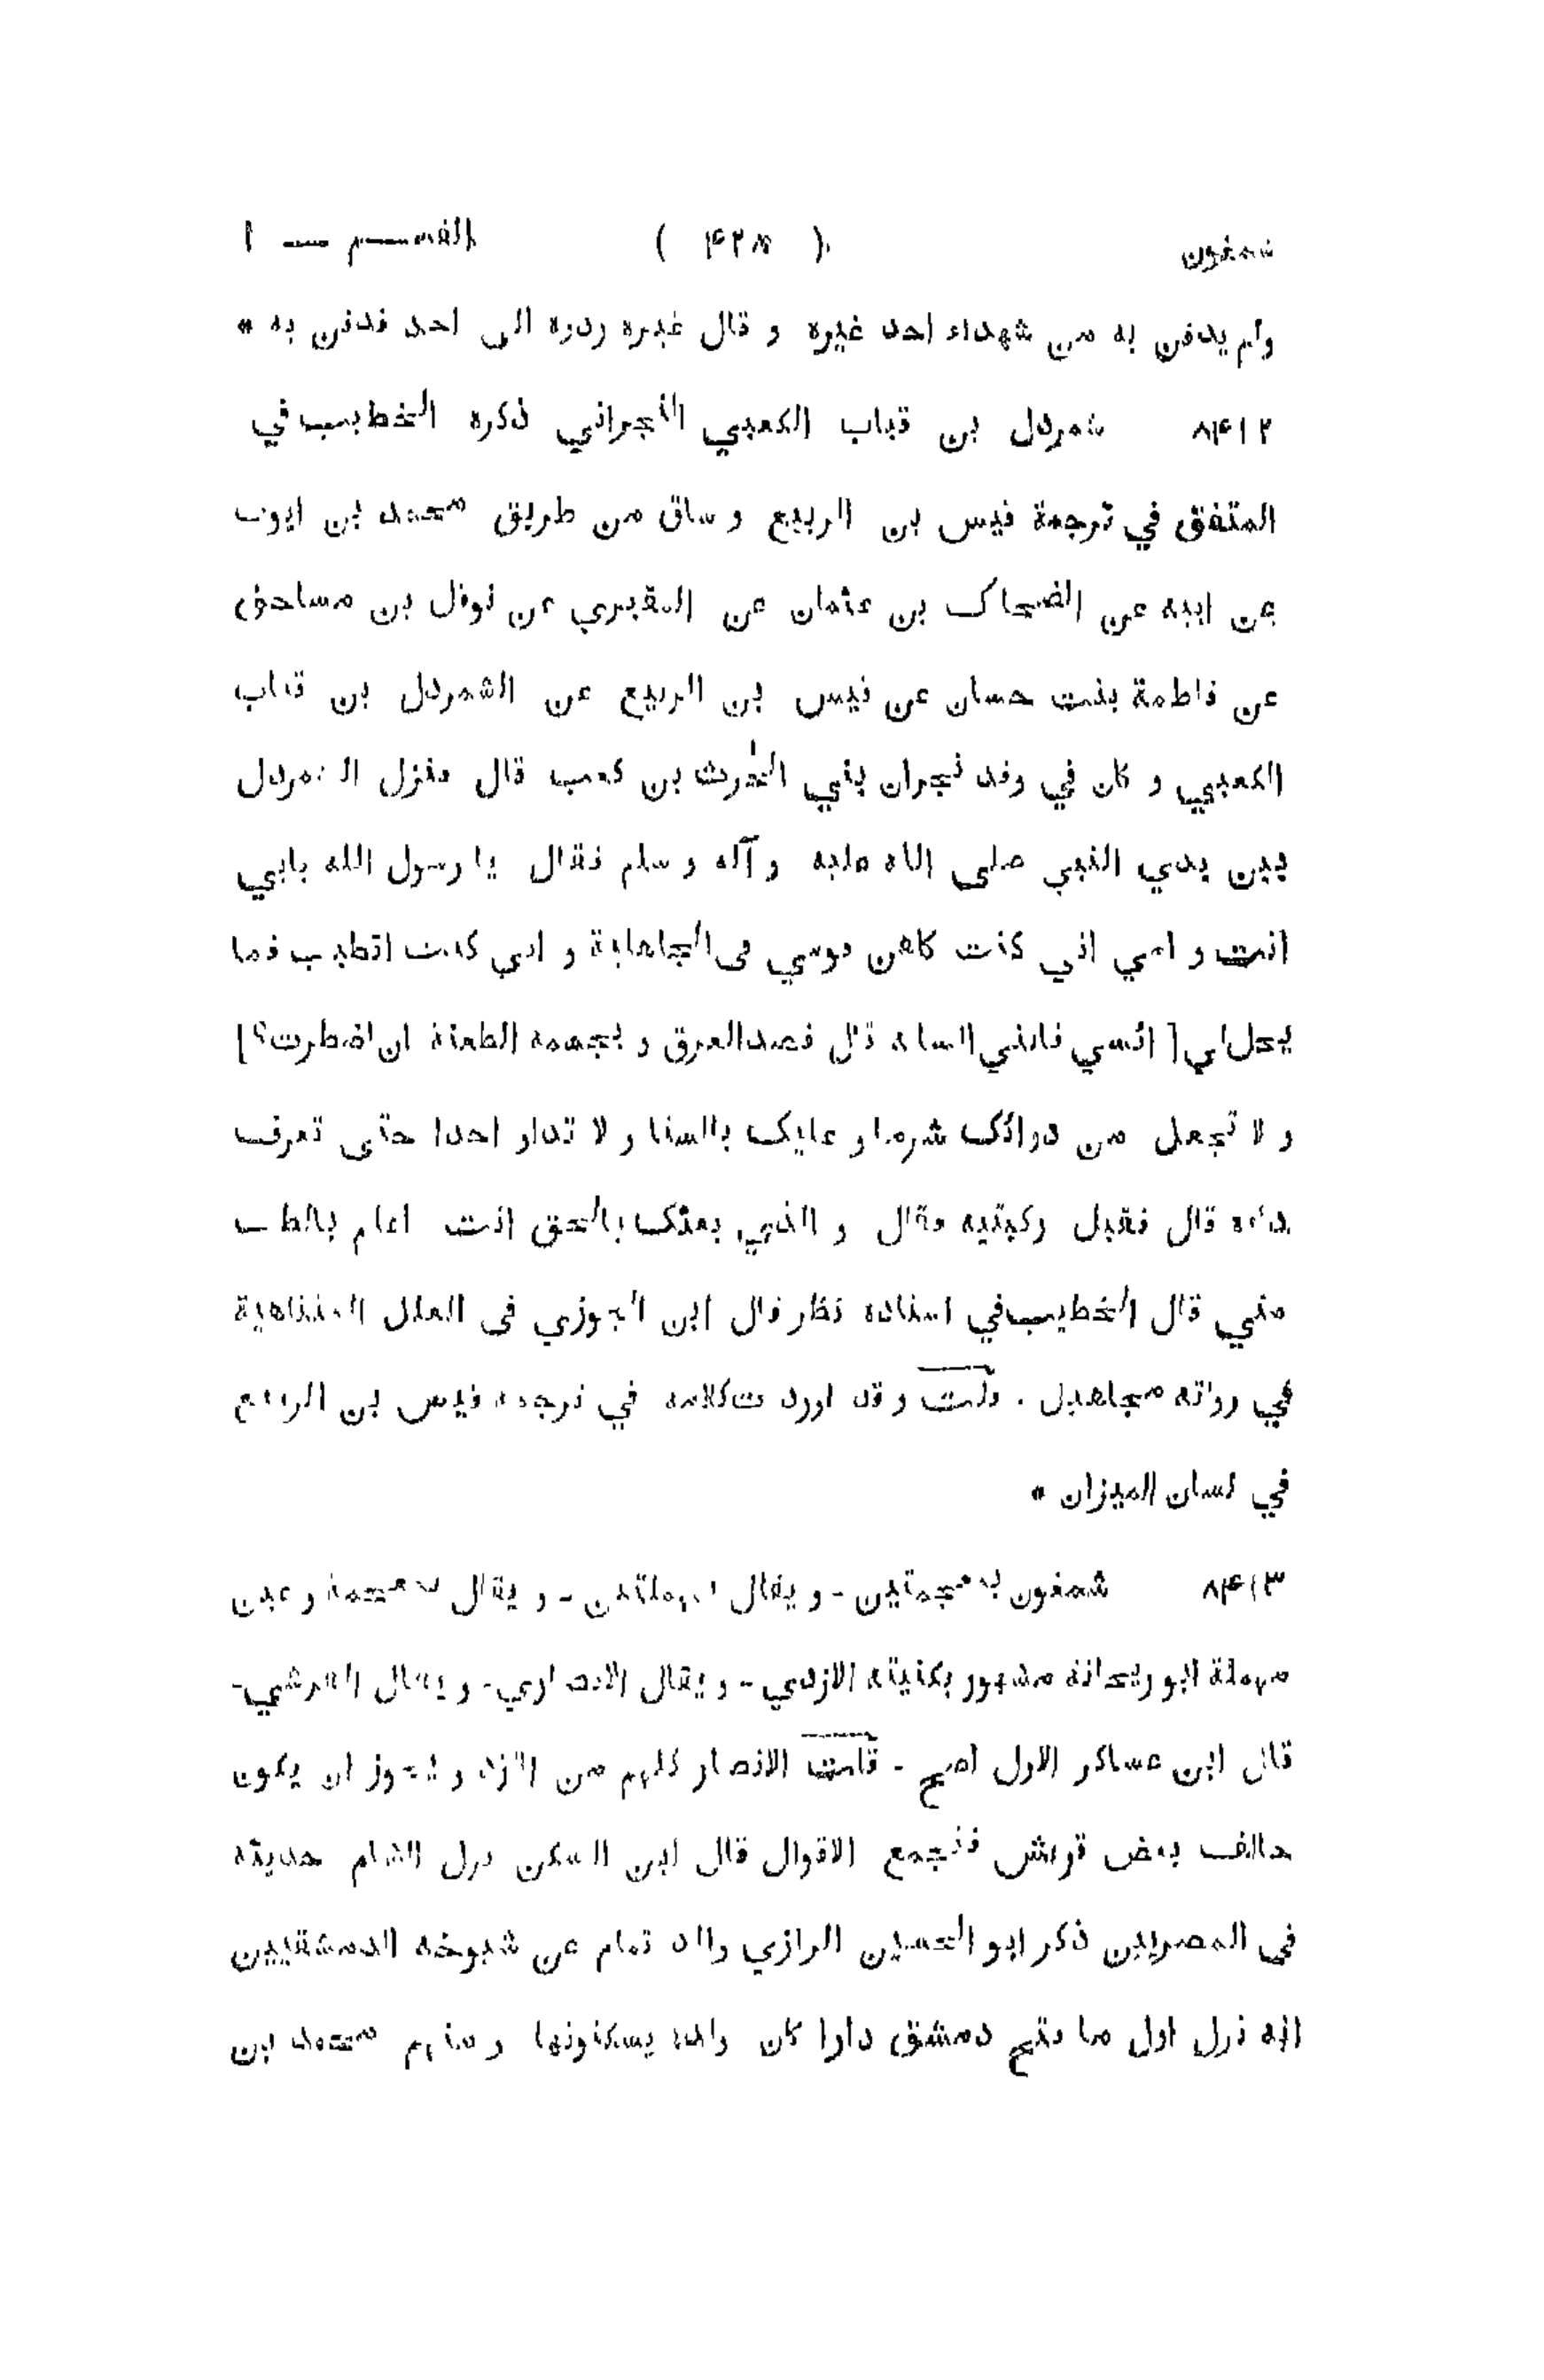 شمغون ( ۴۲۸ ) القسم — ا
ولم يدفن به من شهداء احد غيره و قال غيره ردوه الى احد فدفن به *
۸۴۱۲ شمردل بن قباب الكعبي النجراني ذكره الخطيب في
المتفق في ترجمة قيس بن الربيع و ساق من طريق محمد بن ايوب
عن ابيه عن الضحاك بن عثمان عن المقبري عن نوفل بن مساحق
عن فاطمة بنت حسان عن قيس بن الربيع عن الشمردل بن قباب
الكعبي و كان في وفد نجران بني الحٰرث بن كعب قال فنزل الشمردل
بين يدي النبي صلى الله عليه و آله و سلم فقال يا رسول الله بابي
انت و امي اني كنت كاهن قومي فى الجاهلية و اني كنت اتطبب فما
يحل لي [ ائتسي فانني الساعة قال فصد العرق و بجسمه الطعنة ان اضطرت؟ ]
و لا تجعل من دوائك شرما و عليك بالسنا و لا تداو احدا حتى تعرف
داءه قال فقبل ركبتيه فقال و الذي بعثك بالحق انت اعلم بالطب
مني قال الخطيب في اسناده نظر قال ابن الجوزي فى العلل المتناهية
في رواته مجاهيل . قلت و قد اوردت كلامه في ترجمة قيس بن الربيع
في لسان الميزان *
۸۴۱۳ شمغون بمعجمتين - و يقال بمهملتين - و يقال بمعجمة و عين
مهملة ابو ريحانة مشهور بكنيته الازدي - و يقال الانصاري - و يقال القرشي -
قال ابن عساكر الاول اصح - قلت الانصار كلهم من الازد و يجوز ان يكون
حالف بعض قريش فتجمع الاقوال قال ابن السكن نزل الشام حديثه
فى المصريين ذكر ابو الحسين الرازي والد تمام عن شيوخه الدمشقيين
انه نزل اول ما فتح دمشق دارا كان ولده يسكنونها و منهم محمد بن